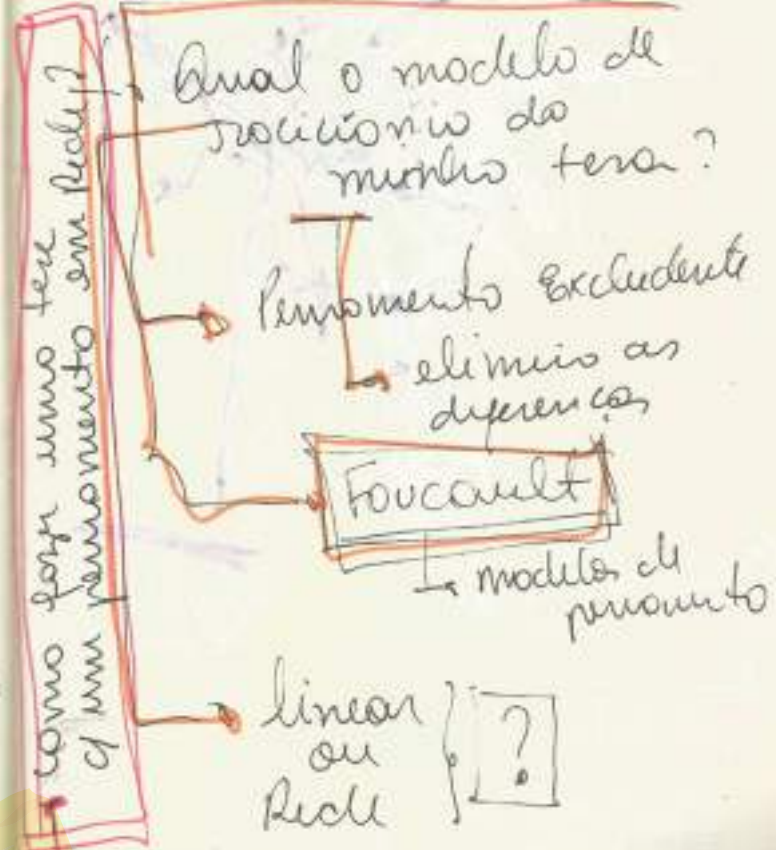 como fazer uma tese
c/ um pensamento em Rede?
Qual o modelo de
raciocínio da
minha tese?
Pensamento Excludente
elimina as
diferenças
Foucault
modelos de
pensamento
linear
ou
Rede
?